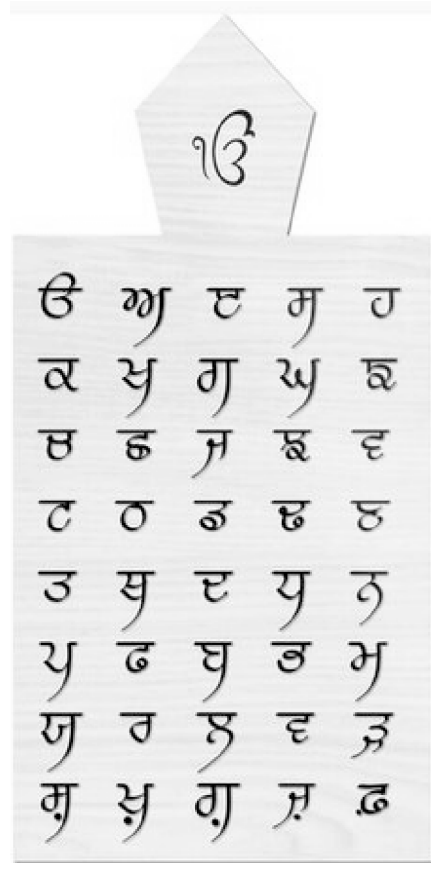 ੴ
ੳ ਅ ੲ ਸ ਹ
ਕ ਖ ਗ ਘ ਙ
ਚ ਛ ਜ ਝ ਞ
ਟ ਠ ਡ ਢ ਣ
ਤ ਥ ਦ ਧ ਨ
ਪ ਫ ਬ ਭ ਮ
ਯ ਰ ਲ ਵ ੜ
ਸ਼ ਖ਼ ਗ਼ ਜ਼ ਫ਼